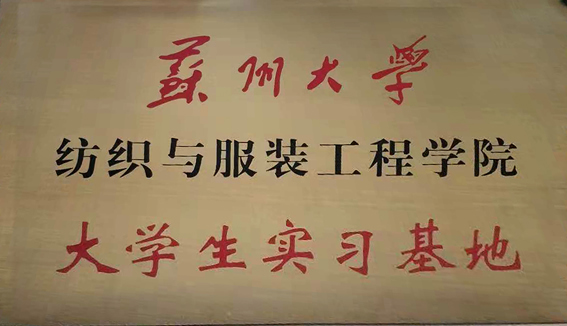 蘇州大学
纺织与服装工程学院
大学生实习基地